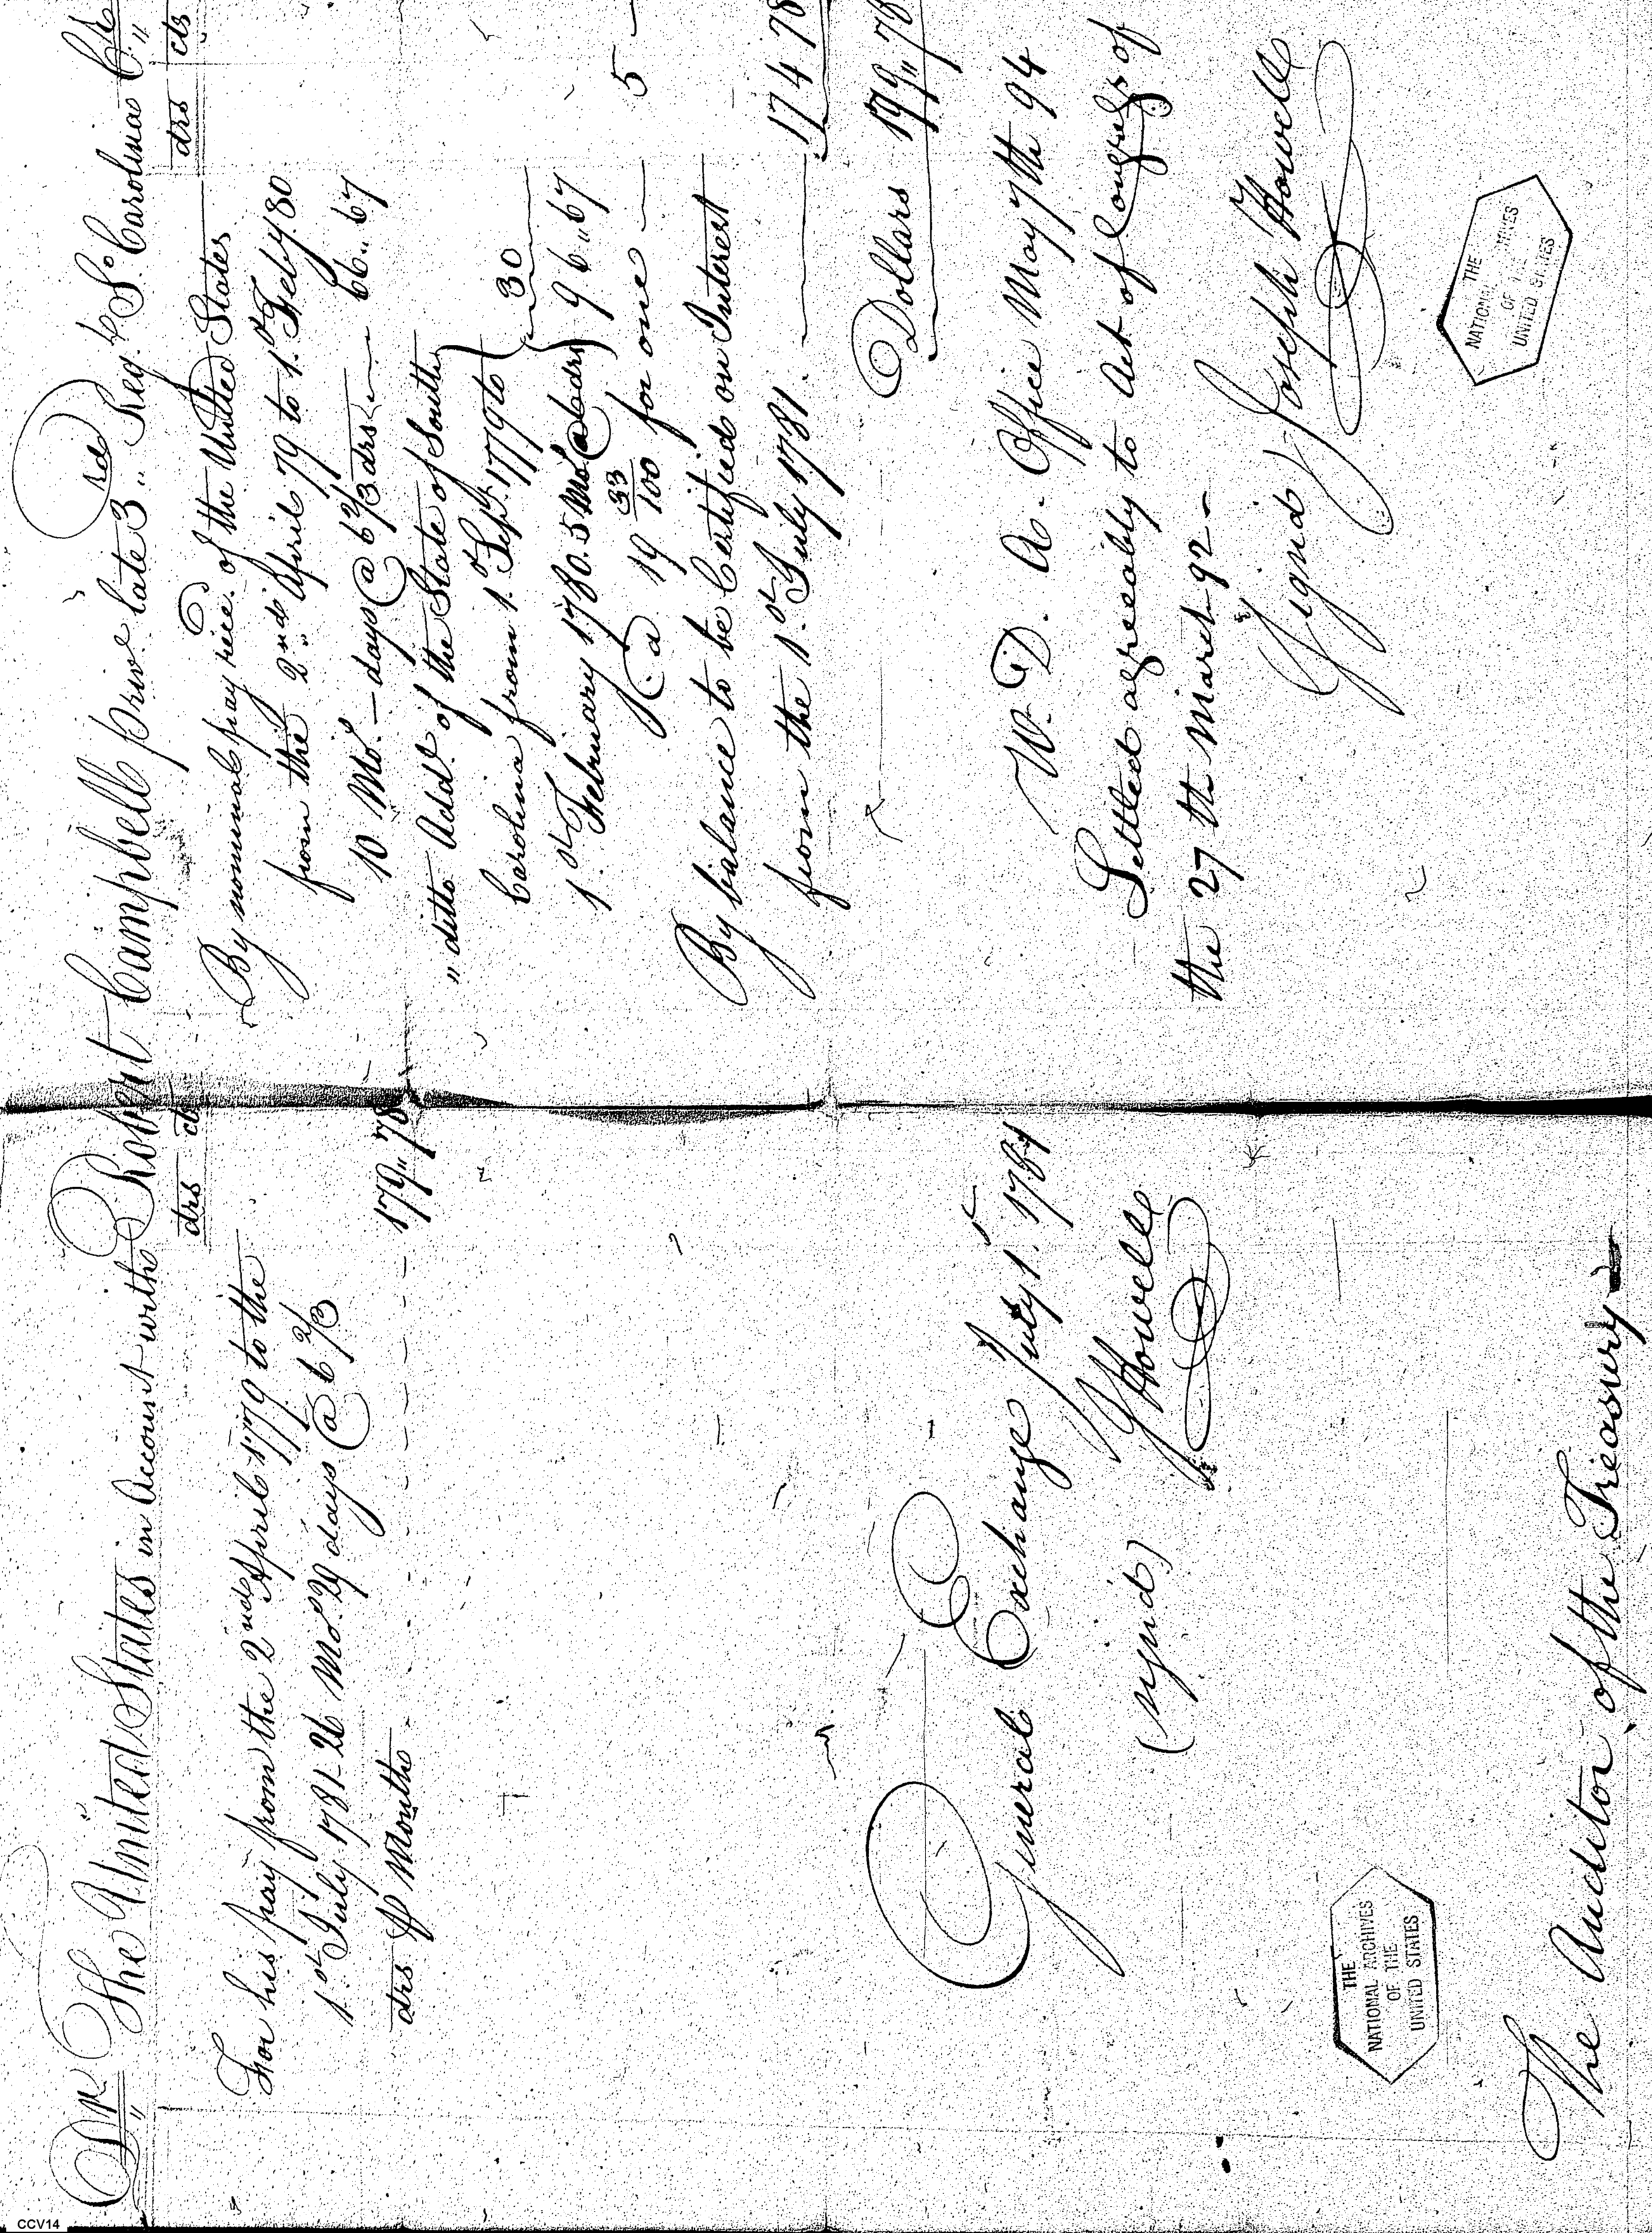 Dr The United States in Account with Robert Campbell priv.e late 3.d Reg.t So. Carolina Cr.
drs cts
For his pay from the 2nd April 1779 to the
1.st July 1781 - 26 Mo. 29 days @ 6 2/3
drs ⅌ Month - - - - - - - 179,, 78
General Exchange July 1.st 1784
(signd) J Howell
THE
NATIONAL ARCHIVES
OF THE
UNITED STATES
The Auditor of the Treasury
drs cts
By nominal pay rece.d of the United States
from the 2nd April 79 to 1.st Feby. 80
10 Mo.s — days @ 6 2/3 drs — 66.. 67
,, ditto Add.l of the State of South
Carolina from 1.st Sept. 1779 to
1.st February 1780. 5 Mo.s @ 6 drs 30
96,, 67
@ 19 33/100 for one — 5 -
By balance to be Certified on Interest
from the 1.st July 1781. — 174 78
Dollars 179,, 78
W. D. A. Office May 7th 94
Settled agreeably to Act of Congress of
the 27th March 92 -
Signd Joseph Howell
THE
NATIONAL ARCHIVES
OF THE
UNITED STATES
CCV14